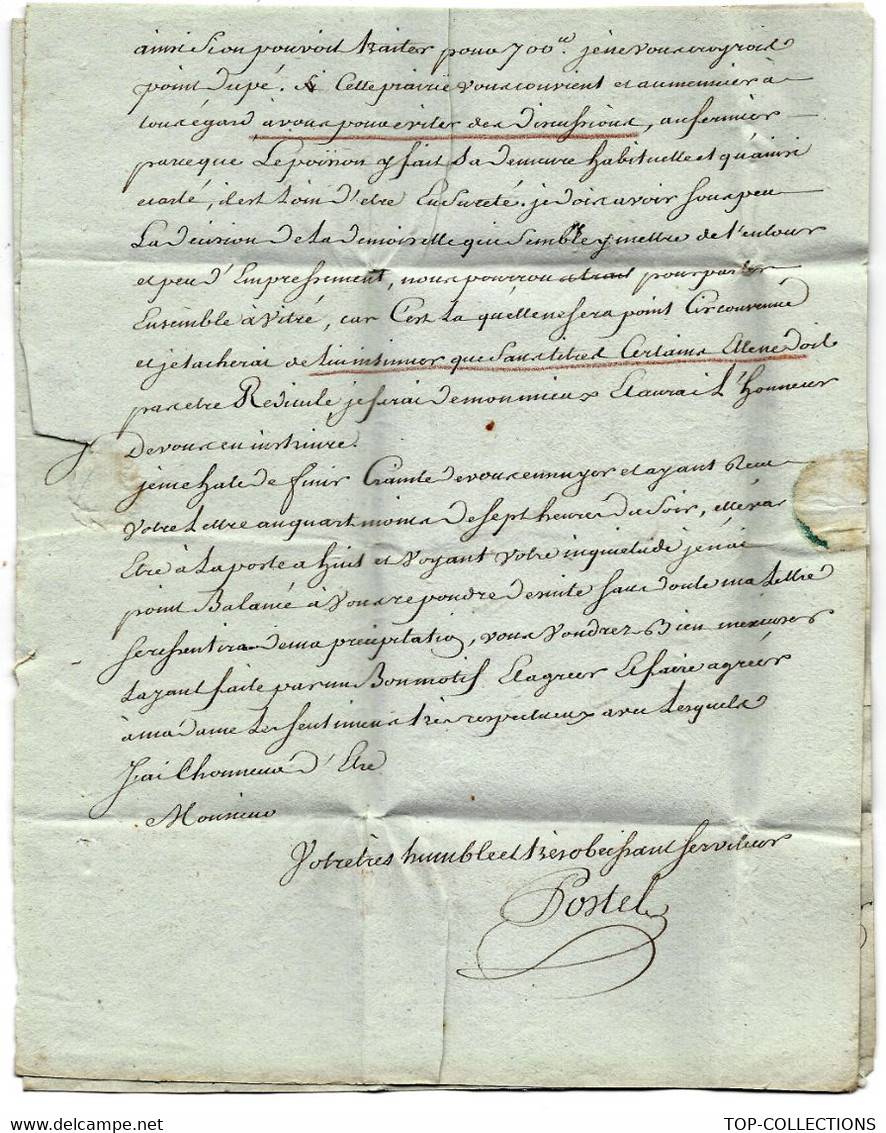 ainsi si on pouvoit traiter pour 700ᵗᵗ. je ne vous croyrois
point dupé. Si Cette prairie vous convient et au meunier à
tous égard à vous pour eviter des discussions, au fermier
parceque Le poisson y fait Sa demeure habituelle et qu'ainsi
ecarté, il est Loin d'etre En Sureté. je dois avoir sous peu
La decision de La demoiselle qui Semble y mettre de l'entour
et peu d'Empressement, nous pourrons pour parler
Ensemble à Vitré, car C'est La quelle ne sera point Circonvenue
et je tacherai de lui insinuer que sans titres Certains Elle ne doit
pas etre Redicule, je ferai de mon mieux Et aurai L'honneur
De vous en instruire.
je me hate de finir Crainte de vous ennuyer et ayant Recu
Votre Lettre au quart moins de sept heures du Soir, elle va
Etre à La poste a huit et Voyant Votre inquietude je n'ai
point Balancé à Vous repondre de suite sans doute ma Lettre
se ressentira de ma précipitation, vous Voudrez Bien m'excuser
L'ayant faite par un Bon motif Et agreer Et faire agréer
à ma dame Les sentimens très respectueux avec Lesquels
J'ai L'honneur d'Etre
Monsieur
Votre très humble et très obeissant serviteur
Postel
TOP-COLLECTIONS